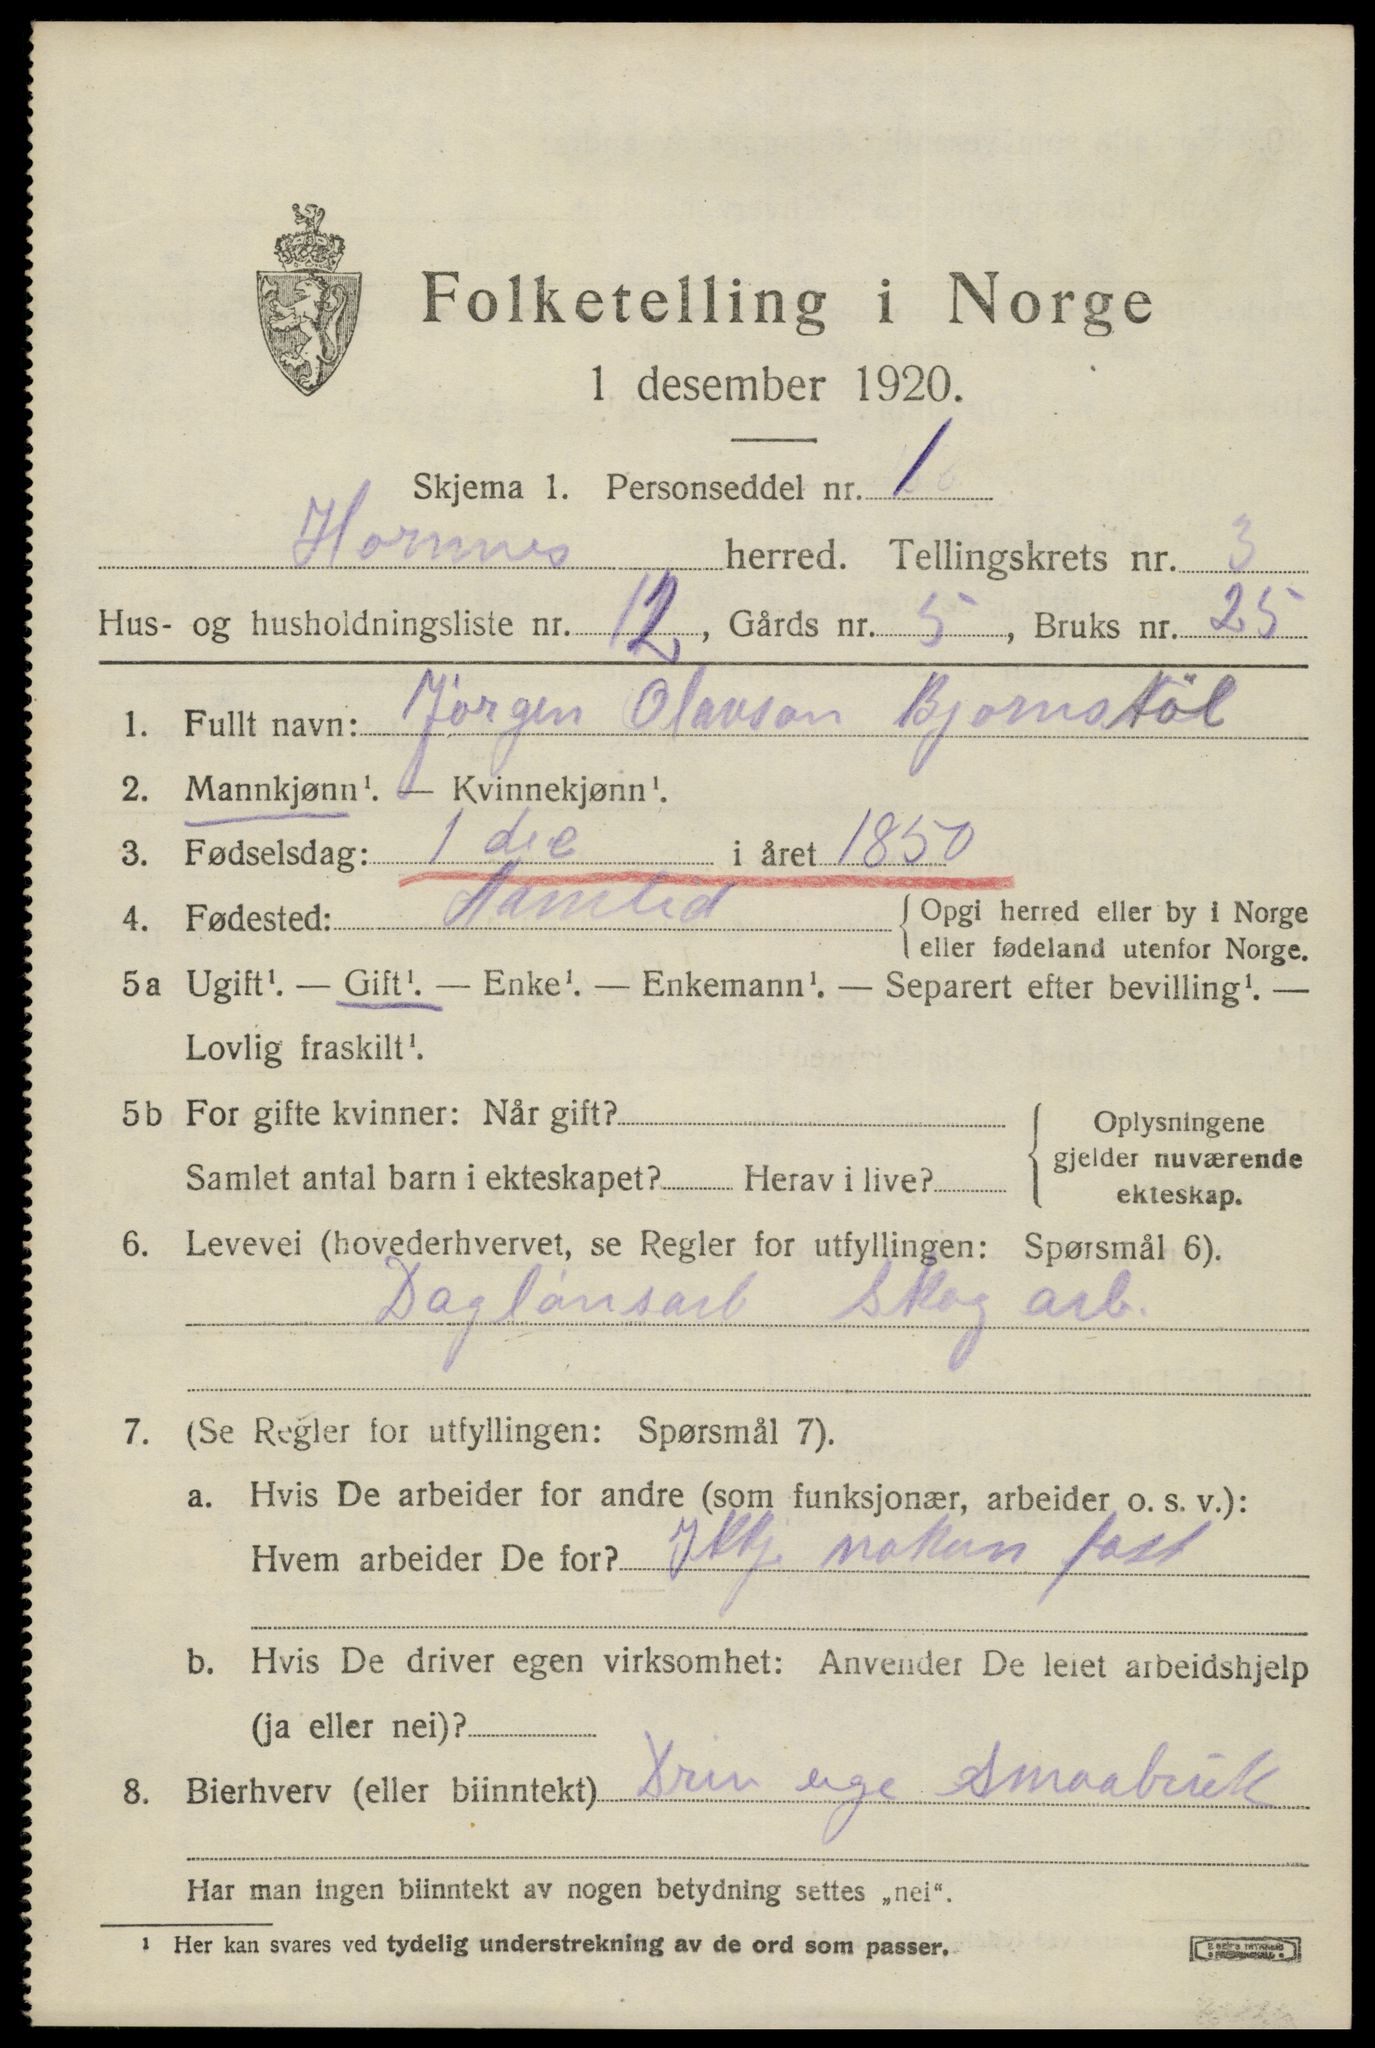 Folketelling i Norge
1 desember 1920.
Skjema 1. Personseddel nr. 1
Hornnes herred. Tellingskrets nr. 3
Hus- og husholdningsliste nr. 12, Gårds nr. 5, Bruks nr. 25
1. Fullt navn: Jørgen Olavson Bjornstöl
2. Mannkjønn¹. — Kvinnekjønn¹.
3. Fødselsdag: 1 dec i året 1850
4. Fødested: Aamlid { Opgi herred eller by i Norge
eller fødeland utenfor Norge.
5a Ugift¹. — Gift¹. — Enke¹. — Enkemann¹. — Separert efter bevilling¹. —
Lovlig fraskilt¹.
5b For gifte kvinner: Når gift?
Samlet antal barn i ekteskapet? Herav i live?
Oplysningene
gjelder nuværende
ekteskap.
6. Levevei (hovederhvervet, se Regler for utfyllingen: Spørsmål 6).
Daglønsarb Skog arb.
7. (Se Regler for utfyllingen: Spørsmål 7).
a. Hvis De arbeider for andre (som funksjonær, arbeider o. s. v.):
Hvem arbeider De for? Ikkj nokun fast
b. Hvis De driver egen virksomhet: Anvender De leiet arbeidshjelp
(ja eller nei)?
8. Bierhverv (eller biinntekt) Driv ege Smaabruk
Har man ingen biinntekt av nogen betydning settes „nei“.
¹ Her kan svares ved tydelig understrekning av de ord som passer.